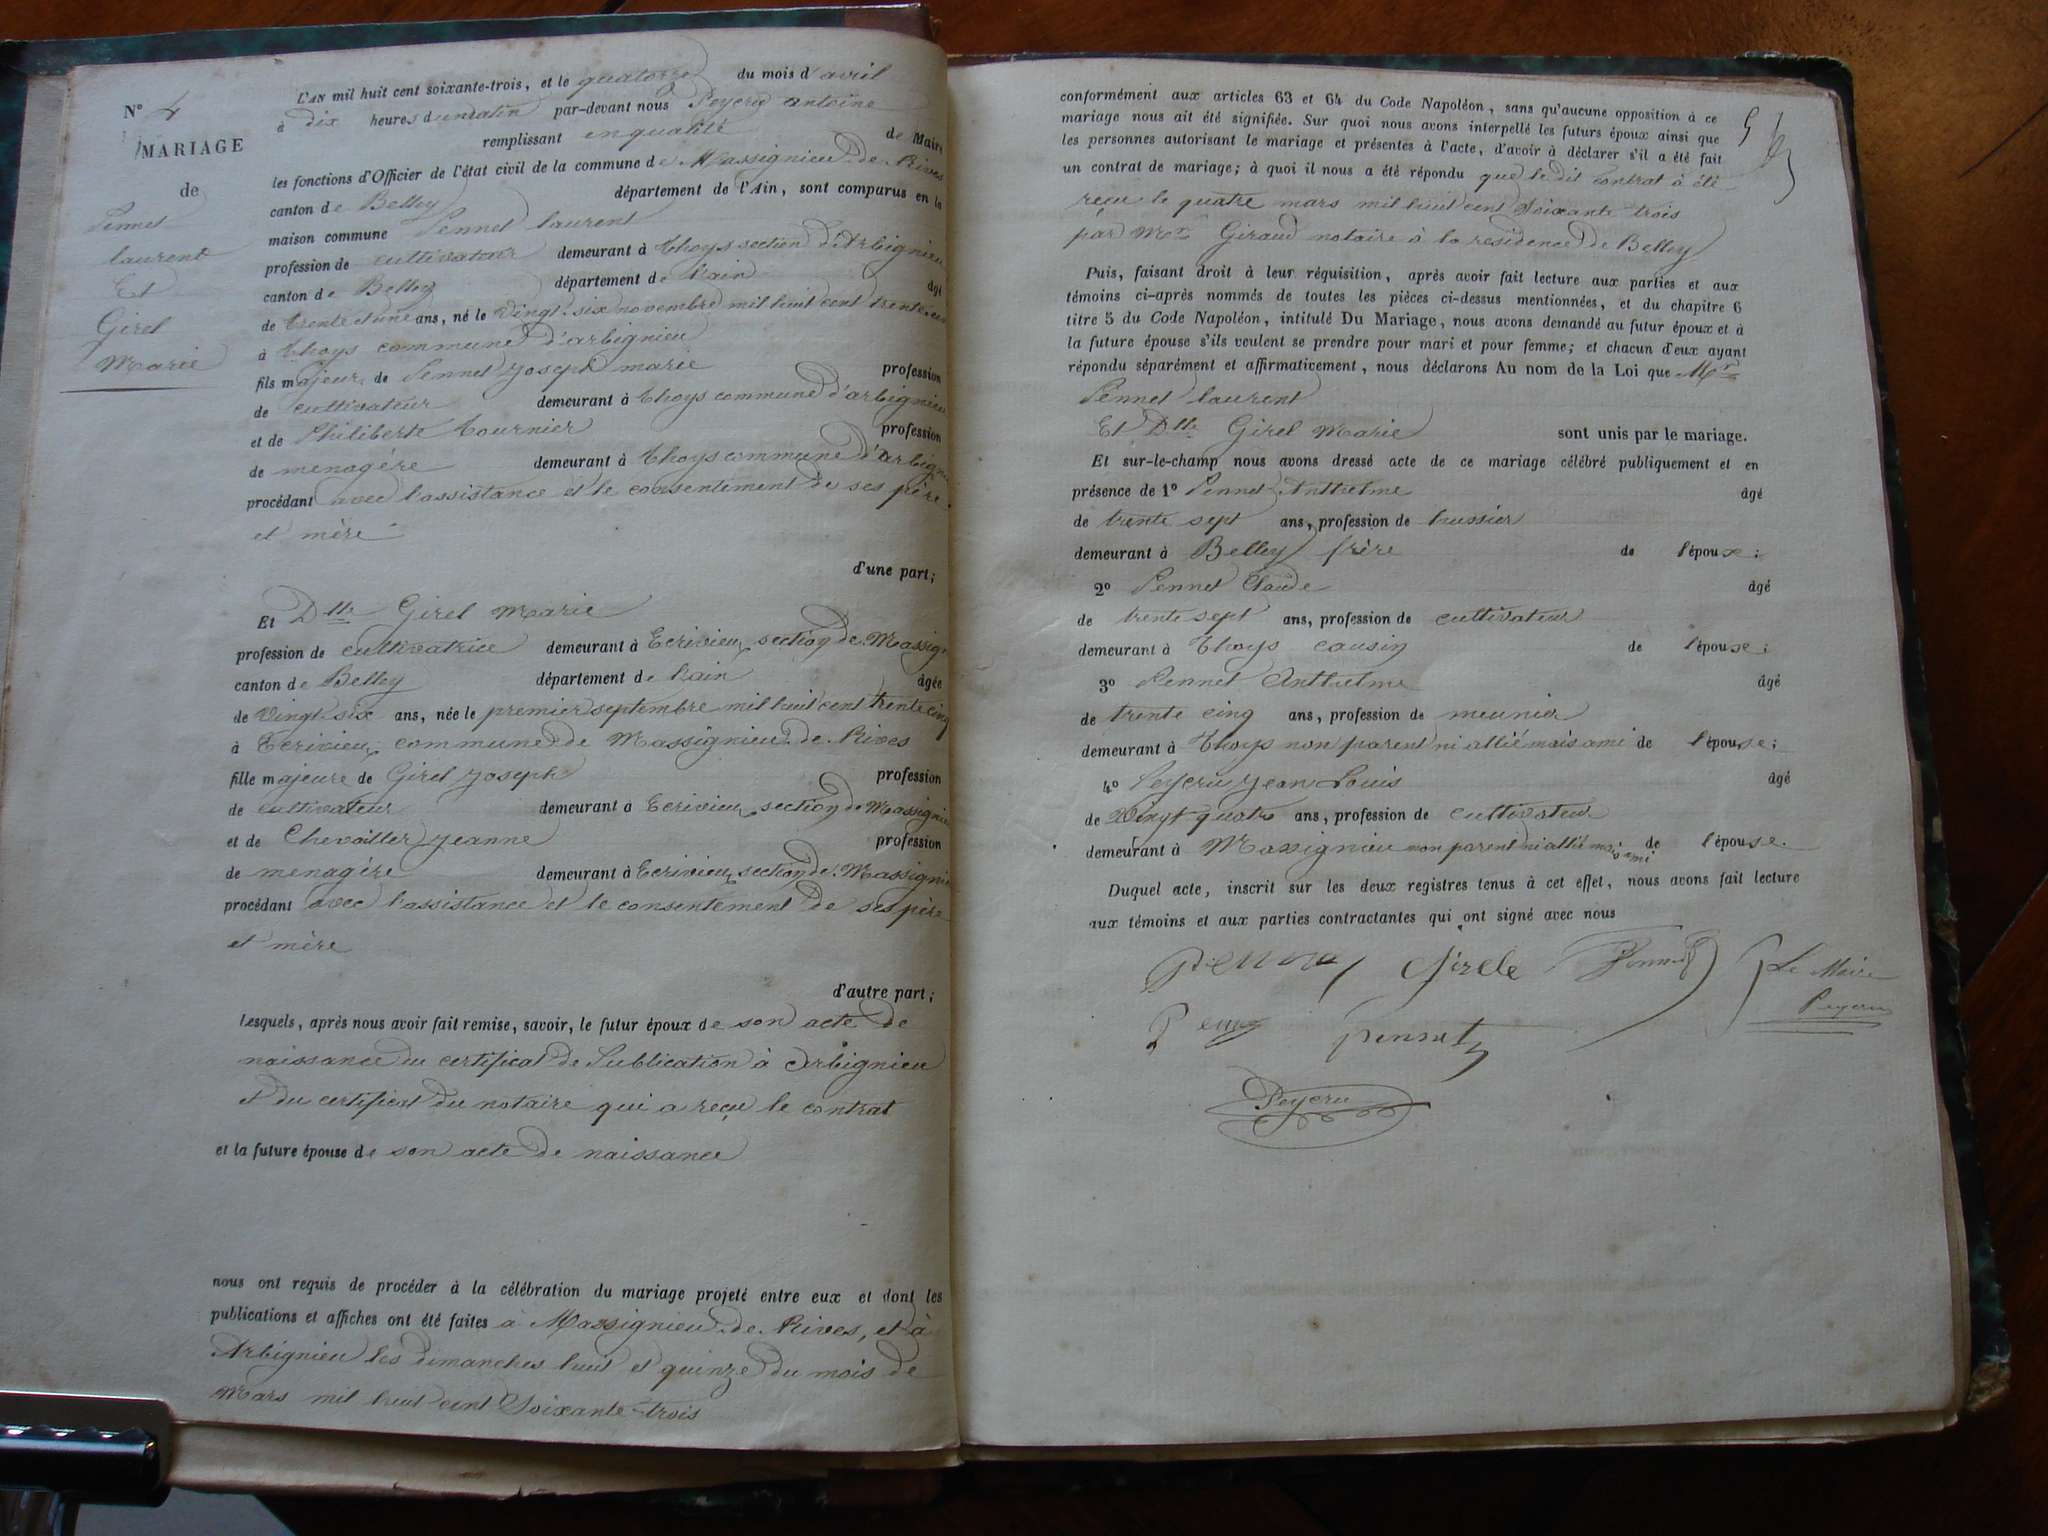 N° 4
MARIAGE
de
Pennet
laurent
Et
Girel
Marie
L'AN mil huit cent soixante-trois, et le quatorze du mois d'avril
à dix heures du matin par-devant nous Peyeru antoine
remplissant en qualité de Maire
les fonctions d'Officier de l'état civil de la commune de Massignieu de Rives
canton de Belley département de l'Ain, sont comparus en la
maison commune Pennet laurent
profession de cultivateur demeurant à thoys section d'Arbignieu
canton de Belley département de l'ain âgé
de trente et une ans, né le vingt-six novembre mil huit cent trente-un
à thoys commune d'arbignieu
fils majeur de Pennet Joseph marie profession
de cultivateur demeurant à thoys commune d'arbignieu
et de Philiberte tournier profession
de menagère demeurant à thoys commune d'arbignieu
procédant avec l'assistance et le consentement de ses père
et mère
d'une part;
Et Dlle Girel Marie
profession de cultivatrice demeurant à Ecrivieu section de Massign
canton de Belley département de l'ain âgée
de vingt-six ans, née le premier septembre mil huit cent trente cinq
à Ecrivieu commune de Massignieu de Rives
fille majeure de Girel Joseph profession
de cultivateur demeurant à Ecrivieu section de Massignie
et de Chevailler Jeanne profession
de menagère demeurant à Ecrivieu section de Massignie
procédant avec l'assistance et le consentement de ses père
et mère
d'autre part;
Lesquels, après nous avoir fait remise, savoir, le futur époux de son acte de
naissance du certificat de Publication à Arbignieu
et du certificat du notaire qui a reçu le contrat
et la future épouse de son acte de naissance
nous ont requis de procéder à la célébration du mariage projeté entre eux et dont les
publications et affiches ont été faites à Massignieu de Rives, et à
Arbignieu les dimanches huit et quinze du mois de
Mars mil huit cent Soixante-trois
conformément aux articles 63 et 64 du Code Napoléon, sans qu'aucune opposition à ce
mariage nous ait été signifiée. Sur quoi nous avons interpellé les futurs époux ainsi que
les personnes autorisant le mariage et présentes à l'acte, d'avoir à déclarer s'il a été fait
un contrat de mariage; à quoi il nous a été répondu que le dit contrat à été
reçu le quatre mars mil huit cent Soixante trois
par Me Giraud notaire à la residence de Belley
Puis, faisant droit à leur réquisition, après avoir fait lecture aux parties et aux
témoins ci-après nommés de toutes les pièces ci-dessus mentionnées, et du chapitre 6
titre 5 du Code Napoléon, intitulé Du Mariage, nous avons demandé au futur époux et à
la future épouse s'ils veulent se prendre pour mari et pour femme; et chacun d'eux ayant
répondu séparément et affirmativement, nous déclarons Au nom de la Loi que Mr
Pennet laurent
Et Dlle Girel Marie sont unis par le mariage.
Et sur-le-champ nous avons dressé acte de ce mariage célébré publiquement et en
présence de 1° Pennet Anthelme âgé
de trente sept ans, profession de hussier
demeurant à Belley frère de l'époux;
2° Pennet Claude âgé
de trente sept ans, profession de cultivateur
demeurant à thoys cousin de l'épouse;
3° Pennet Anthelme âgé
de trente cinq ans, profession de meunier
demeurant à thoys non parent ni allié mais ami de l'épouse;
4° Peyeru Jean Louis âgé
de vingt quatre ans, profession de cultivateur
demeurant à Massignieu non parent ni allié mais ami de l'épouse.
Duquel acte, inscrit sur les deux registres tenus à cet effet, nous avons fait lecture
aux témoins et aux parties contractantes qui ont signé avec nous
Girele Pennet Le Maire
Peyeru
pennet
Peyeru